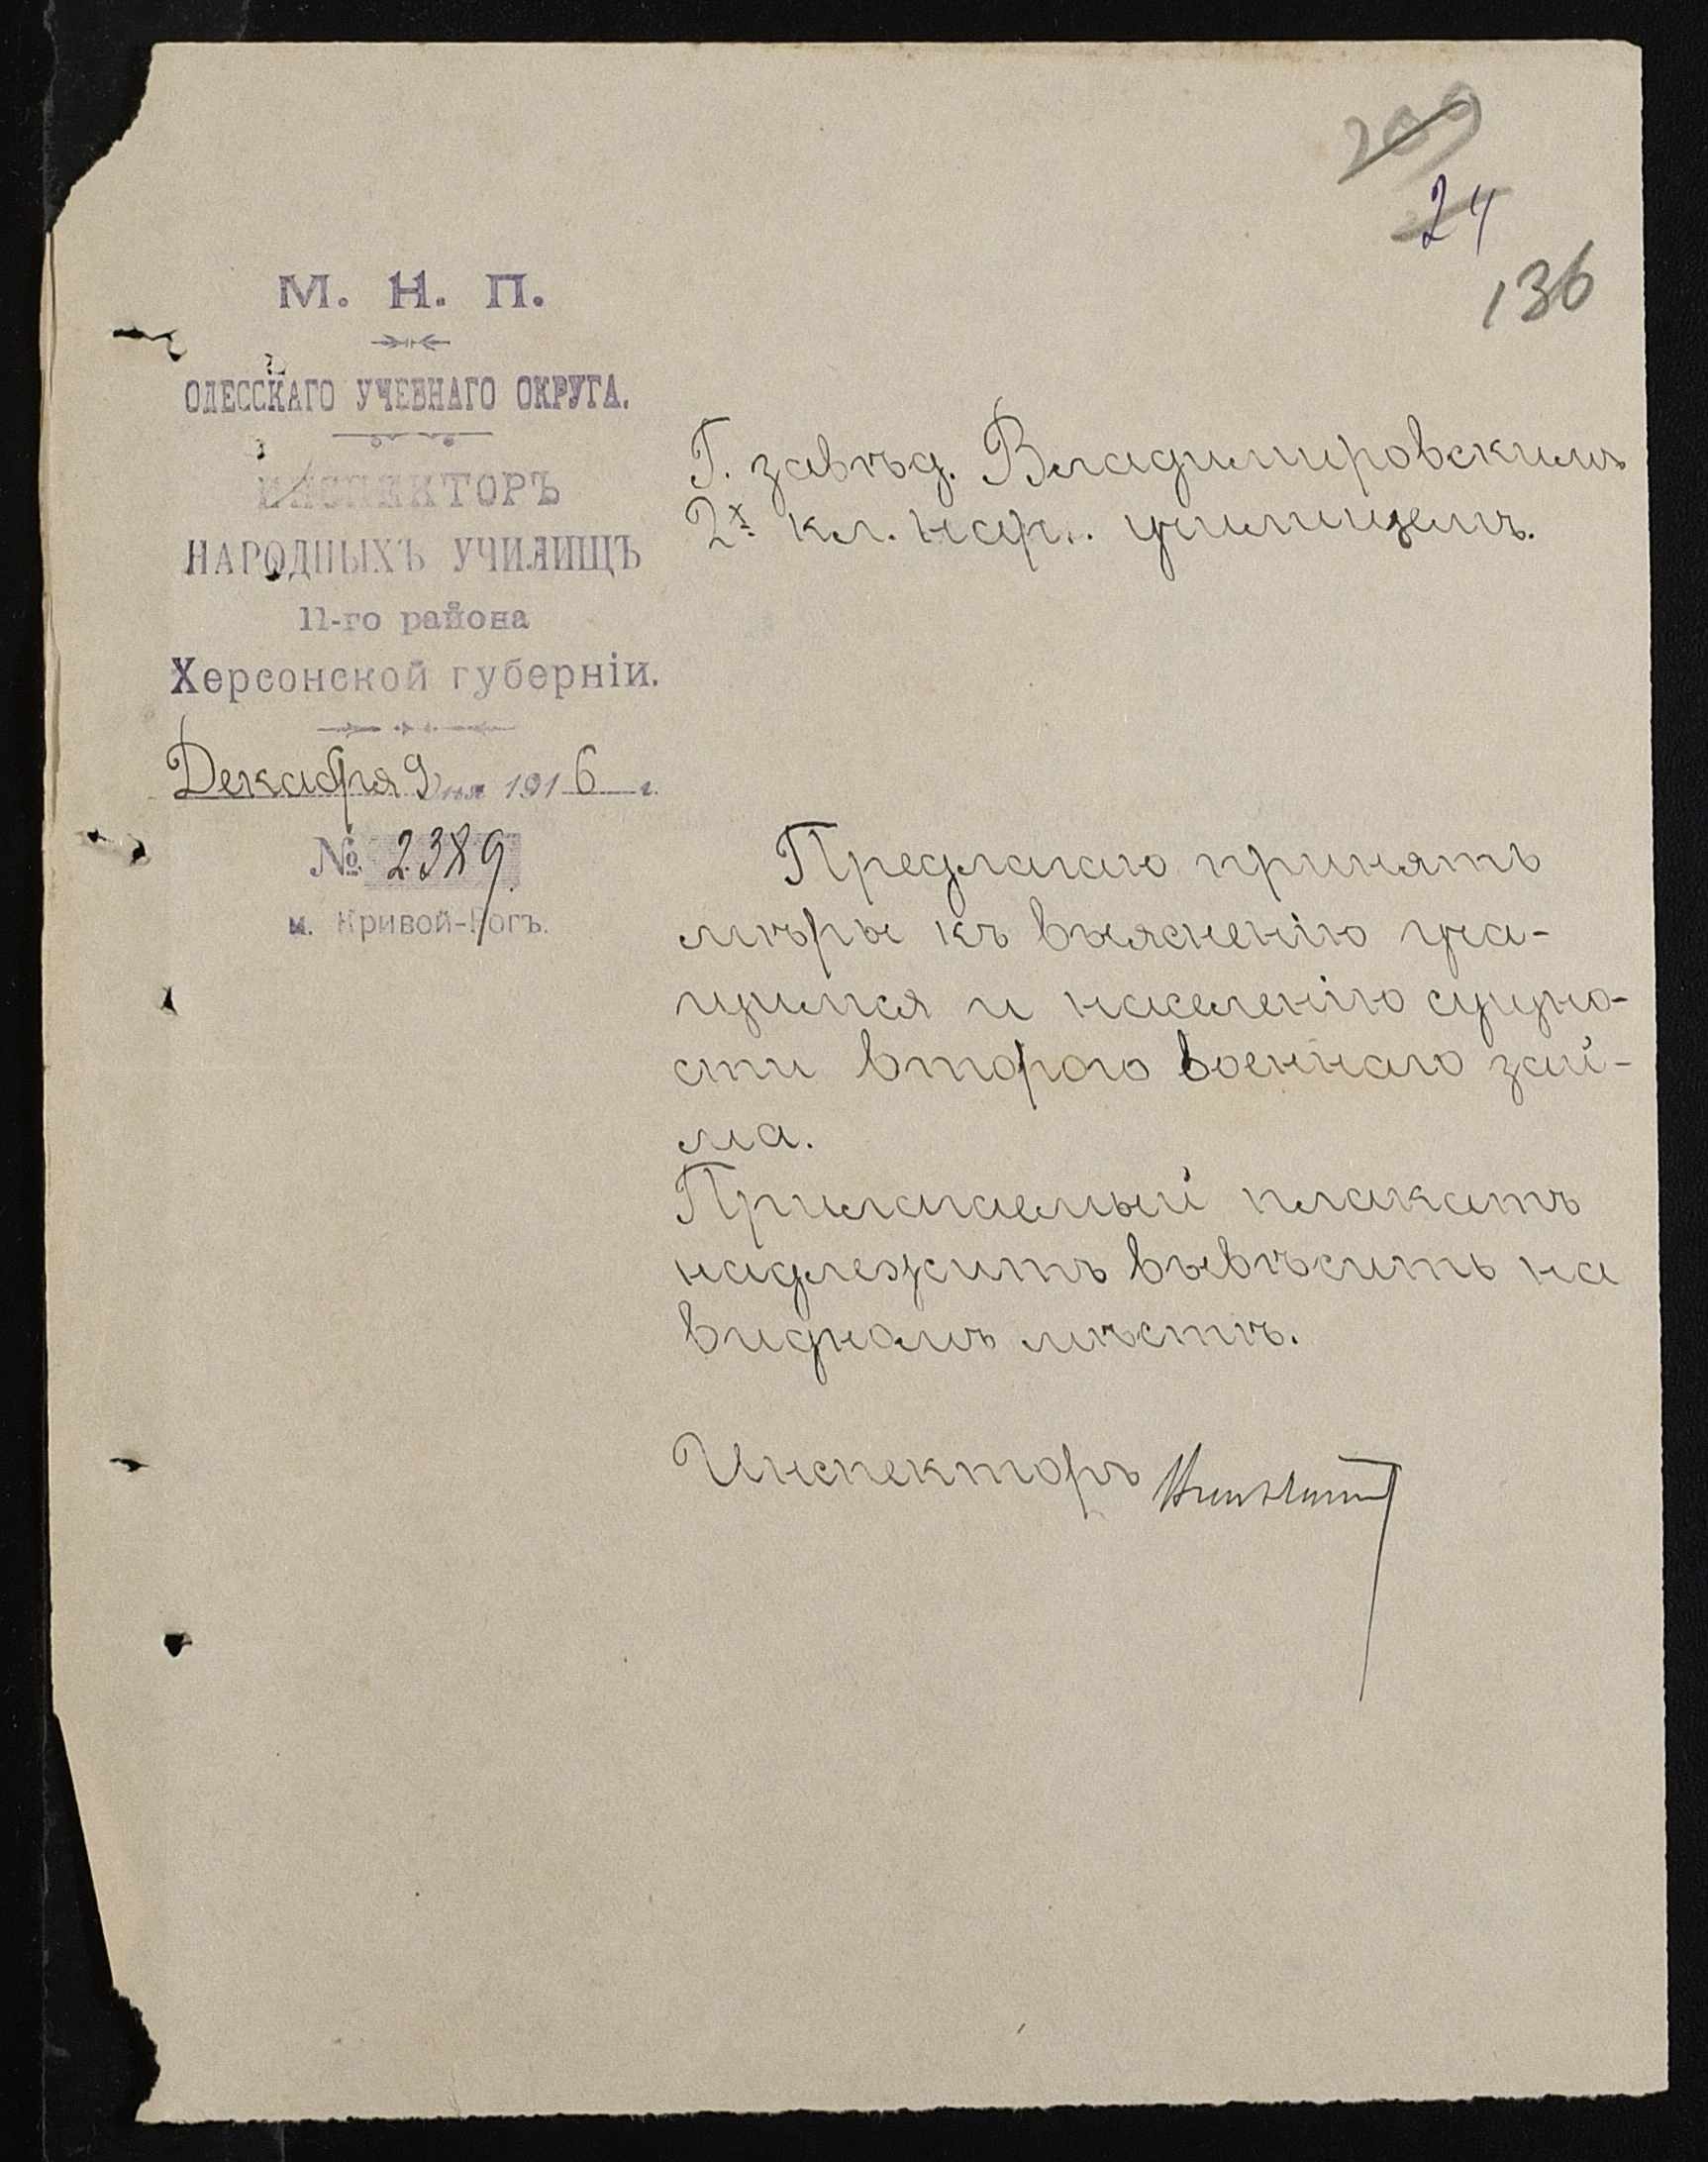 209
24
136
М. Н. П.
ОДЕССКАГО УЧЕБНАГО ОКРУГА.
ИНСПЕКТОРЪ
НАРОДНЫХЪ УЧИЛИЩЪ
11-го района
Херсонской губерніи.
Декабря 9 дня 1916 г.
№ 2389.
м. Кривой-Рогъ.
Г. завѣд. Владимировскимъ
2х кл. нар. училищемъ.
Предлагаю принять
мѣры къ выясненію уча-
щимся и населенію сущно-
сти второго военнаго зай-
ма.
Прилагаемый плакатъ
надлежитъ вывѣсить на
видномъ мѣстѣ.
Инспекторъ